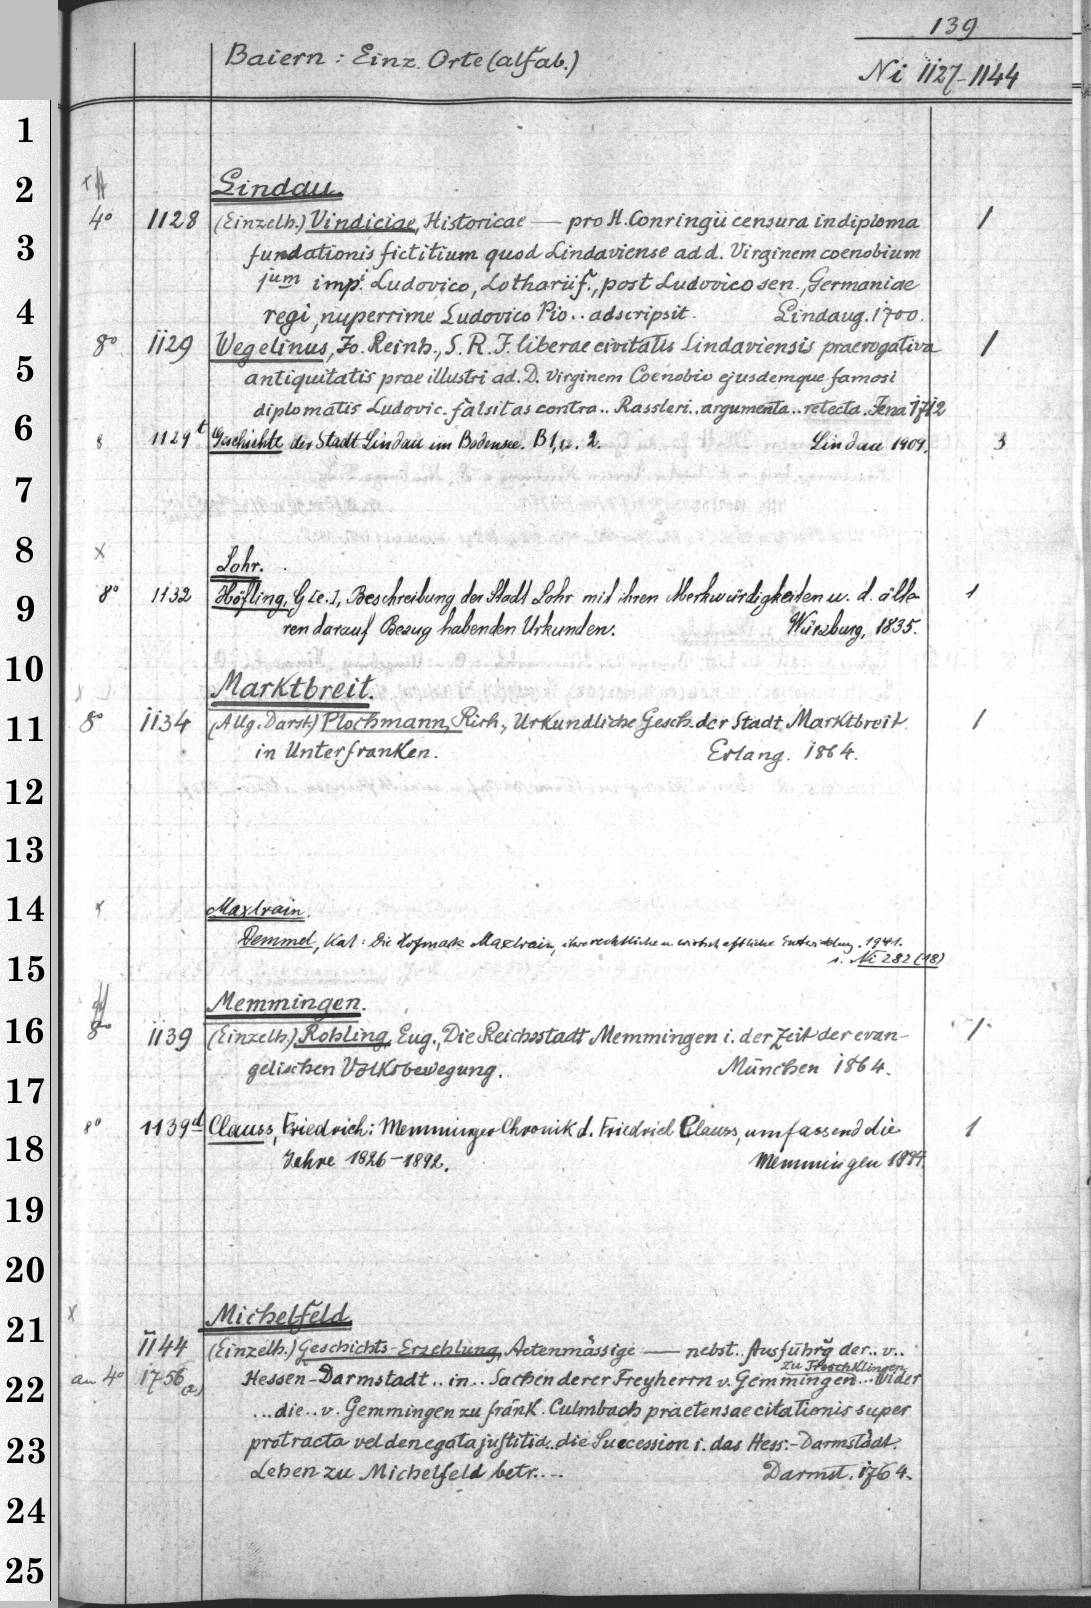 139
Baiern : Einz. Orte (alfab.)
Ni 1127-1144
1
2
3
4
5
6
7
8
9
10
11
12
13
14
15
16
17
18
19
20
21
22
23
24
25
Lindau.
4° 1128 (Einzelh.) Vindiciae, Historicae — pro H. Conringii censura in diploma 1
fundationis fictitium quod Lindaviense ad d. Virginem coenobium
jum imp. Ludovico, Lotharii f., post Ludovico sen., Germaniae
regi, nuperrime Ludovico Pio .. adscripsit. Lindaug. 1700.
8° 1129 Wegelinus, Jo. Reinh., S. R. I. liberae civitatis Lindaviensis praerogativa 1
antiquitatis prae illustri ad. D. Virginem Coenobio ejusdemque famosi
diplomatis Ludovic. falsitas contra .. Rassleri .. argumenta .. retecta. Jena 1712
8 1129t Geschichte der Stadt Lindau im Bodensee. B 1, u. 2. Lindau 1909. 3
x
Lohr.
8° 1132 Höfling, G[e.], Beschreibung der Stadt Lohr mit ihren Merkwürdigkeiten u. d. älte- 1
ren darauf Bezug habenden Urkunden. Würzburg, 1835.
Marktbreit.
8° 1134 (Allg. Darst.) Plochmann, Rich., Urkundliche Gesch. der Stadt Marktbreit 1
in Unterfranken. Erlang. 1864.
x
Maxlrain.
Demmel, Karl: Die Hofmark Maxlrain, ihre rechtliche u. wirtschaftliche Entwicklung. 1941.
s. Ni 282 (18)
Memmingen.
8° 1139 (Einzelh.) Rohling, Eug., Die Reichsstadt Memmingen i. der Zeit der evan- 1
gelischen Volksbewegung. München 1864.
8° 1139d Clauss, Friedrich: Memminger Chronik d. Friedrich Clauss, umfassend die 1
Jahre 1826-1892. Memmingen 1894.
x
Michelfeld
1144 (Einzelh.) Geschichts-Erzehlung, Actenmässige — nebst .. Ausführg der .. v..
zu Treschklingen
an 4° 1756 (2) Hessen-Darmstadt .. in .. Sachen derer Freyherrn v. Gemmingen ... wider
... die .. v. Gemmingen zu fränk. Culmbach praetensae citationis super
protracta vel denegata justitia .. die Succession i. das Hess.-Darmstädt.
Lehen zu Michelfeld betr. ... Darmst. 1764.